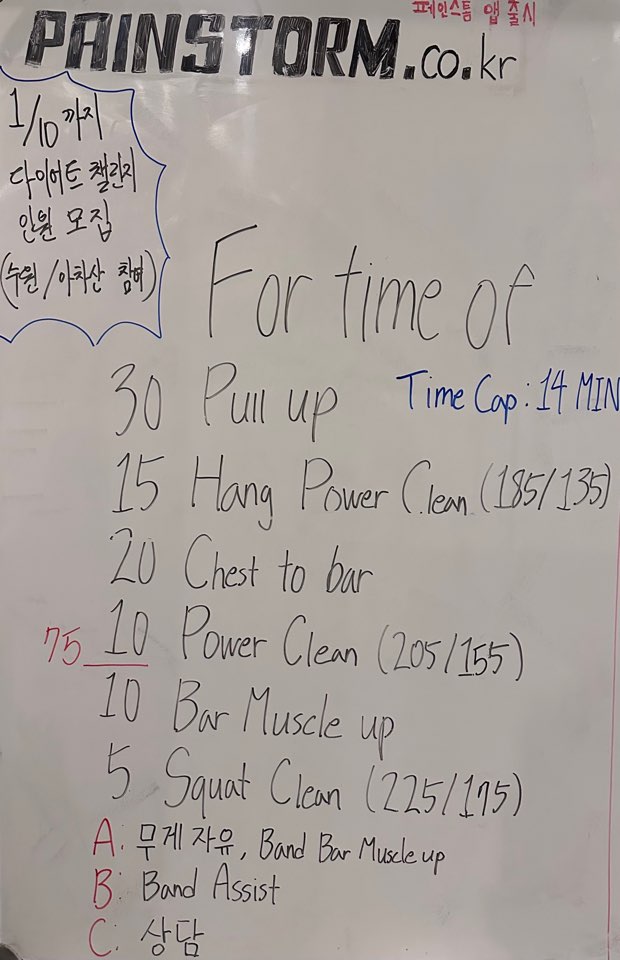 페인스톰 앱 출시
PAINSTORM.co.kr
1/10까지
다이어트 챌린지
인원 모집
(수원/아차산 참여)
For time of
30 Pull up
Time Cap: 14 MIN
15 Hang Power Clean (185/135)
20 Chest to bar
75 10 Power Clean (205/155)
10 Bar Muscle up
5 Squat Clean (225/175)
A: 무게 자유, Band Bar Muscle up
B: Band Assist
C: 상담